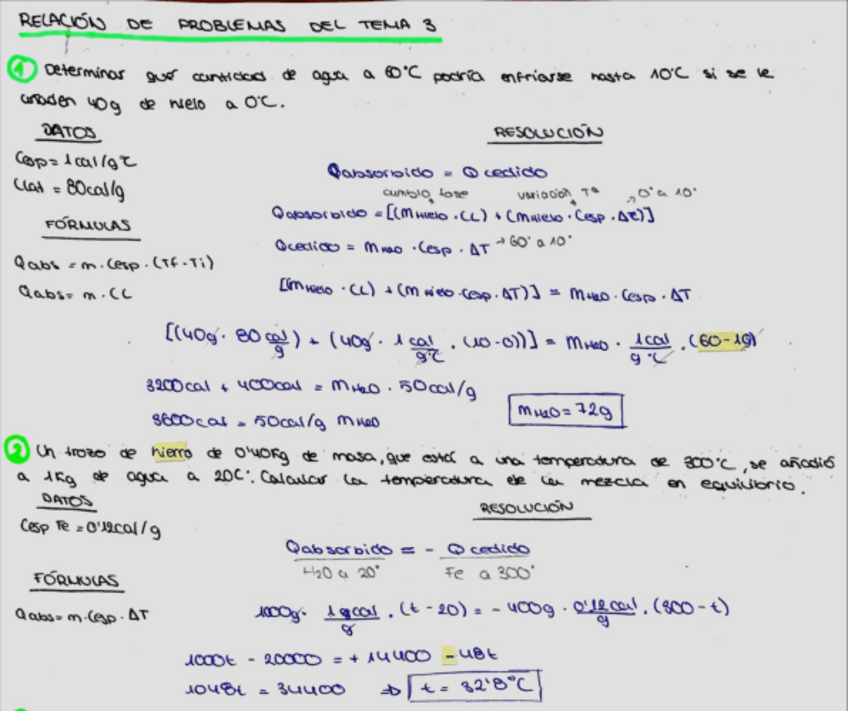 RELACIÓN DE PROBLEMAS DEL TEMA 3
1 Determinar qué cantidad de agua a 60°C podría enfriarse hasta 10°C si se le
añaden 40g de hielo a 0°C.
DATOS
RESOLUCIÓN
Cesp = 1cal/g°C
Clat = 80cal/g
Qabsorbido = Q cedido
cambio fase variación Tª → 0° a 10°
FÓRMULAS
Qabsorbido = [(mHielo · CL) + (mHielo · Cesp · ΔT)]
Qcedido = mH2O · Cesp · ΔT → 60° a 10°
Qabs = m · Cesp · (Tf - Ti)
Qabs = m · CL
[(mHielo · CL) + (mHielo · Cesp · ΔT)] = mH2O · Cesp · ΔT
[(40g · 80 cal/g) + (40g · 1 cal/g°C · (10-0))] = mH2O · 1cal/g°C · (60-10)
3200cal + 400cal = mH2O · 50cal/g
3600cal = 50cal/g mH2O
mH2O = 72g
2 Un trozo de hierro de 0'40Kg de masa, que está a una temperatura de 300°C, se añadió
a 1Kg de agua a 20C°. Calcular la temperatura de la mezcla en equilibrio.
DATOS
RESOLUCIÓN
Cesp Fe = 0'12cal/g
Qabsorbido = - Q cedido
H2O a 20° Fe a 300°
FÓRMULAS
Qabs = m · Cesp · ΔT
1000g · cal/g · (t - 20) = - 400g · 0'12cal/g · (300 - t)
1000t - 20000 = + 14400 - 48t
1048t = 34400 ⇒ t = 32'8°C